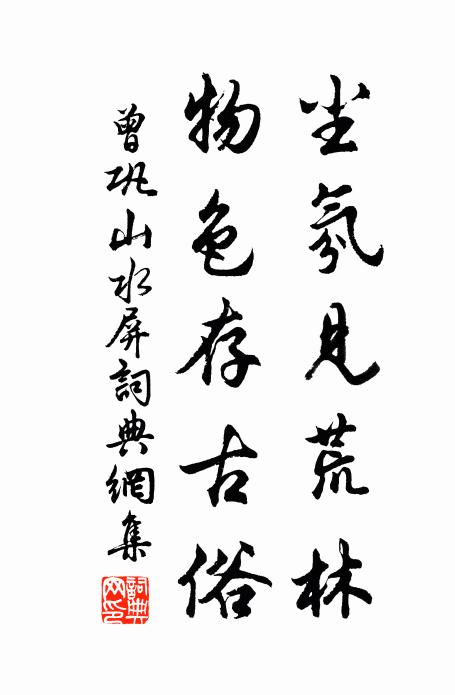 尘氛见荒林
物色存古俗
曾巩山水屏詞典網集
詞典网印